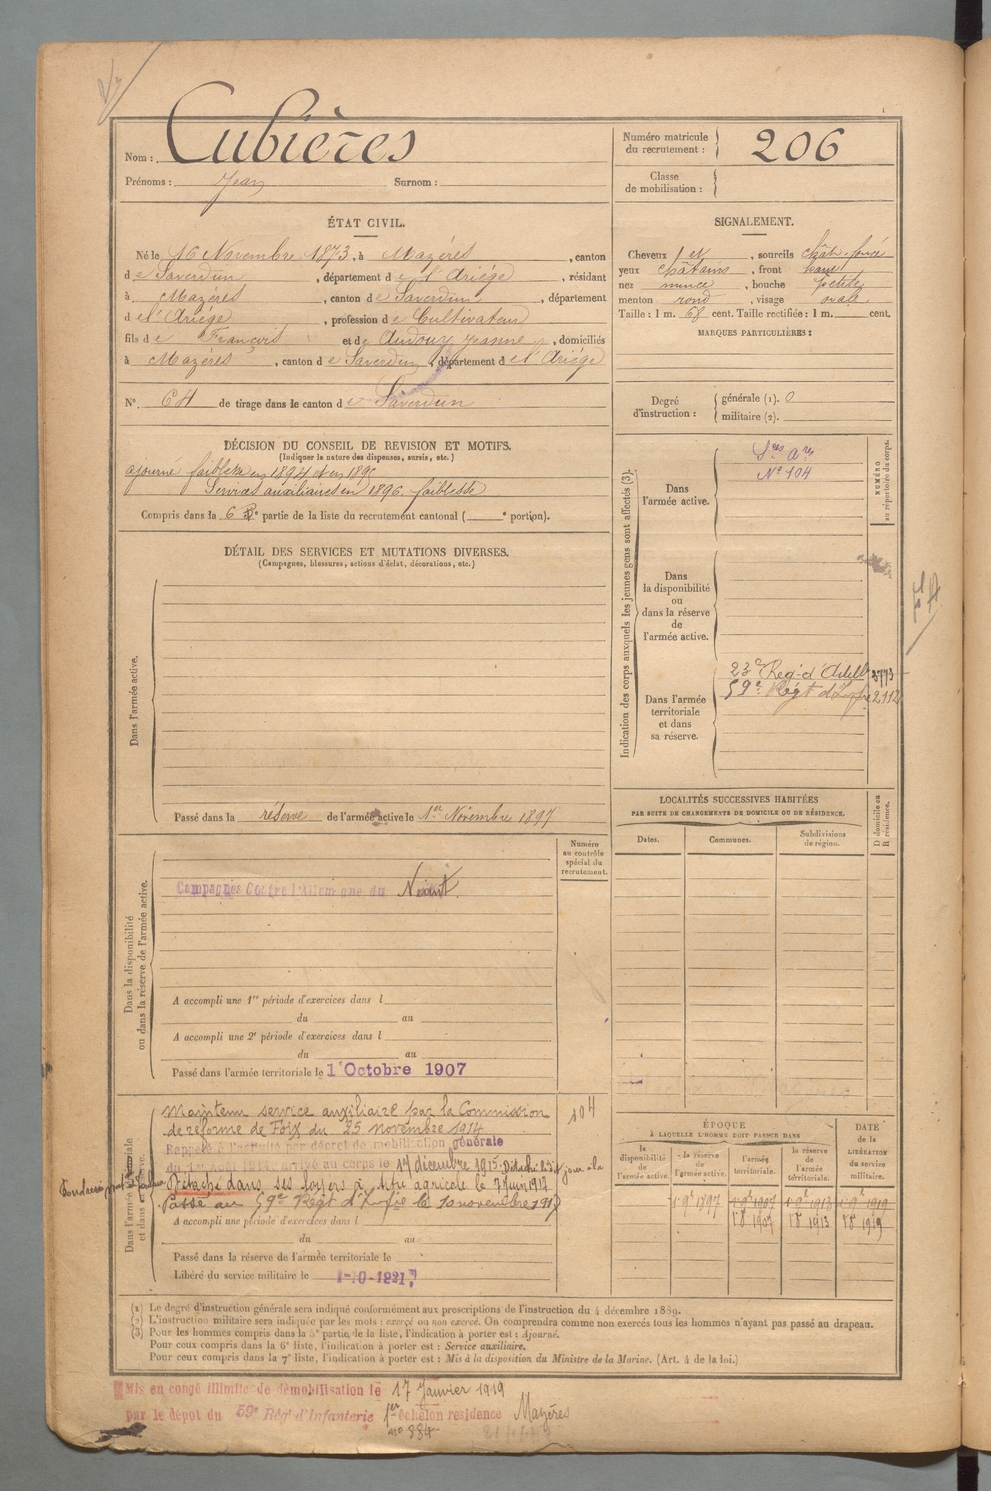 Nom : Cubières
Prénoms : Jean Surnom :
Numéro matricule du recrutement : 206
Classe de mobilisation :
ÉTAT CIVIL.
Né le 16 Novembre 1873, à Mazères, canton
de Saverdun, département de l'Ariège, résidant
à Mazères, canton de Saverdun, département
de l'Ariège, profession de Cultivateur
fils de François et de Audouy Jeanne, domiciliés
à Mazères, canton de Saverdun, département de l'Ariège
N° 64 de tirage dans le canton de Saverdun
SIGNALEMENT.
Cheveux et, sourcils chât. foncé
yeux châtains, front haut
nez mince, bouche petite
menton rond, visage ovale
Taille : 1 m. 68 cent. Taille rectifiée : 1 m. cent.
MARQUES PARTICULIÈRES :
Degré d'instruction :
générale (1). 0
militaire (2).
DÉCISION DU CONSEIL DE REVISION ET MOTIFS.
(Indiquer la nature des dispenses, sursis, etc.)
ajourné faiblesse en 1894 et en 1895
Services auxiliaires en 1896. faiblesse
Compris dans la 6e partie de la liste du recrutement cantonal ( e portion).
DÉTAIL DES SERVICES ET MUTATIONS DIVERSES.
(Campagnes, blessures, actions d'éclat, décorations, etc.)
Dans l'armée active.
Passé dans la réserve de l'armée active le 1er Novembre 1897
Indication des corps auxquels les jeunes gens sont affectés (3).
NUMÉRO au répertoire du corps.
Dans l'armée active.
Ses Ares
N° 104
Dans la disponibilité ou dans la réserve de l'armée active.
Dans l'armée territoriale et dans sa réserve.
23e Reg-d'Artill
59e Régt d'Infie 2112
LOCALITÉS SUCCESSIVES HABITÉES
PAR SUITE DE CHANGEMENTS DE DOMICILE OU DE RÉSIDENCE.
Dates. Communes. Subdivisions de région. D domicile ou R résidence.
Dans la disponibilité ou dans la réserve de l'armée active.
Numéro au contrôle spécial du recrutement.
Campagnes Contre l'Allemagne du Néant
A accompli une 1re période d'exercices dans l
du au
A accompli une 2e période d'exercices dans l
du au
Passé dans l'armée territoriale le 1 Octobre 1907
104
Maintenu service auxiliaire par la Commission
de réforme de Foix du 25 novembre 1914
Rappelé à l'activité par décret de mobilisation générale
du 1er Août 1914. arrivé au corps le 17 décembre 1915. Détaché
Détaché dans ses foyers à titre agricole le 7 Juin 1917
Passé au 59e Régt d'Infie le 10 novembre 1917
A accompli une période d'exercices dans l
du au
Passé dans la réserve de l'armée territoriale le
Libéré du service militaire le 1-10-1921
ÉPOQUE
À LAQUELLE L'HOMME DOIT PASSER DANS
DATE de la LIBÉRATION du service militaire.
la disponibilité de l'armée active. la réserve de l'armée active. l'armée territoriale. la réserve de l'armée territoriale.
1er 9e 1897 1er 9e 1907 1er 9e 1913 1er 9e 1919
1er 8e 1907 1er 8e 1913 1er 8e 1919
(1) Le degré d'instruction générale sera indiqué conformément aux prescriptions de l'instruction du 4 décembre 1889.
(2) L'instruction militaire sera indiquée par les mots : exercé ou non exercé. On comprendra comme non exercés tous les hommes n'ayant pas passé au drapeau.
(3) Pour les hommes compris dans la 5e partie de la liste, l'indication à porter est : Ajourné.
Pour ceux compris dans la 6e liste, l'indication à porter est : Service auxiliaire.
Pour ceux compris dans la 7e liste, l'indication à porter est : Mis à la disposition du Ministre de la Marine. (Art. 4 de la loi.)
Mis en congé illimité de démobilisation le 17 Janvier 1919
par le dépôt du 59e Rég' d'Infanterie 1er échelon residence Mazères
n° 884